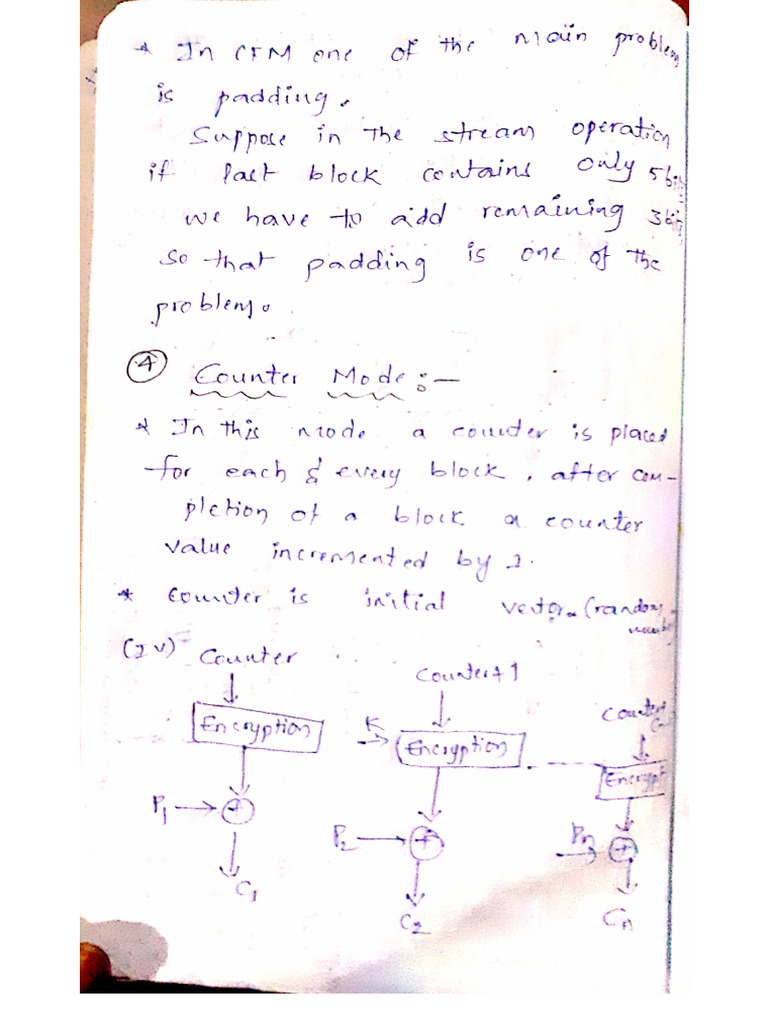 * In CFM one of the main problem
is padding.
Suppose in the stream operation
if last block contains only 5 bits
we have to add remaining 3 bits
so that padding is one of the
problem.
④ Counter Mode :-
* In this mode a counter is placed
for each & every block, after com-
pletion of a block a counter
value incremented by 1.
* Counter is initial vector (random
number
(IV) Counter
Counter+1
Counter+
Encryption
K
Encryption
Encrypt
P1
+
P2
+
Pn
+
C1
C2
Cn